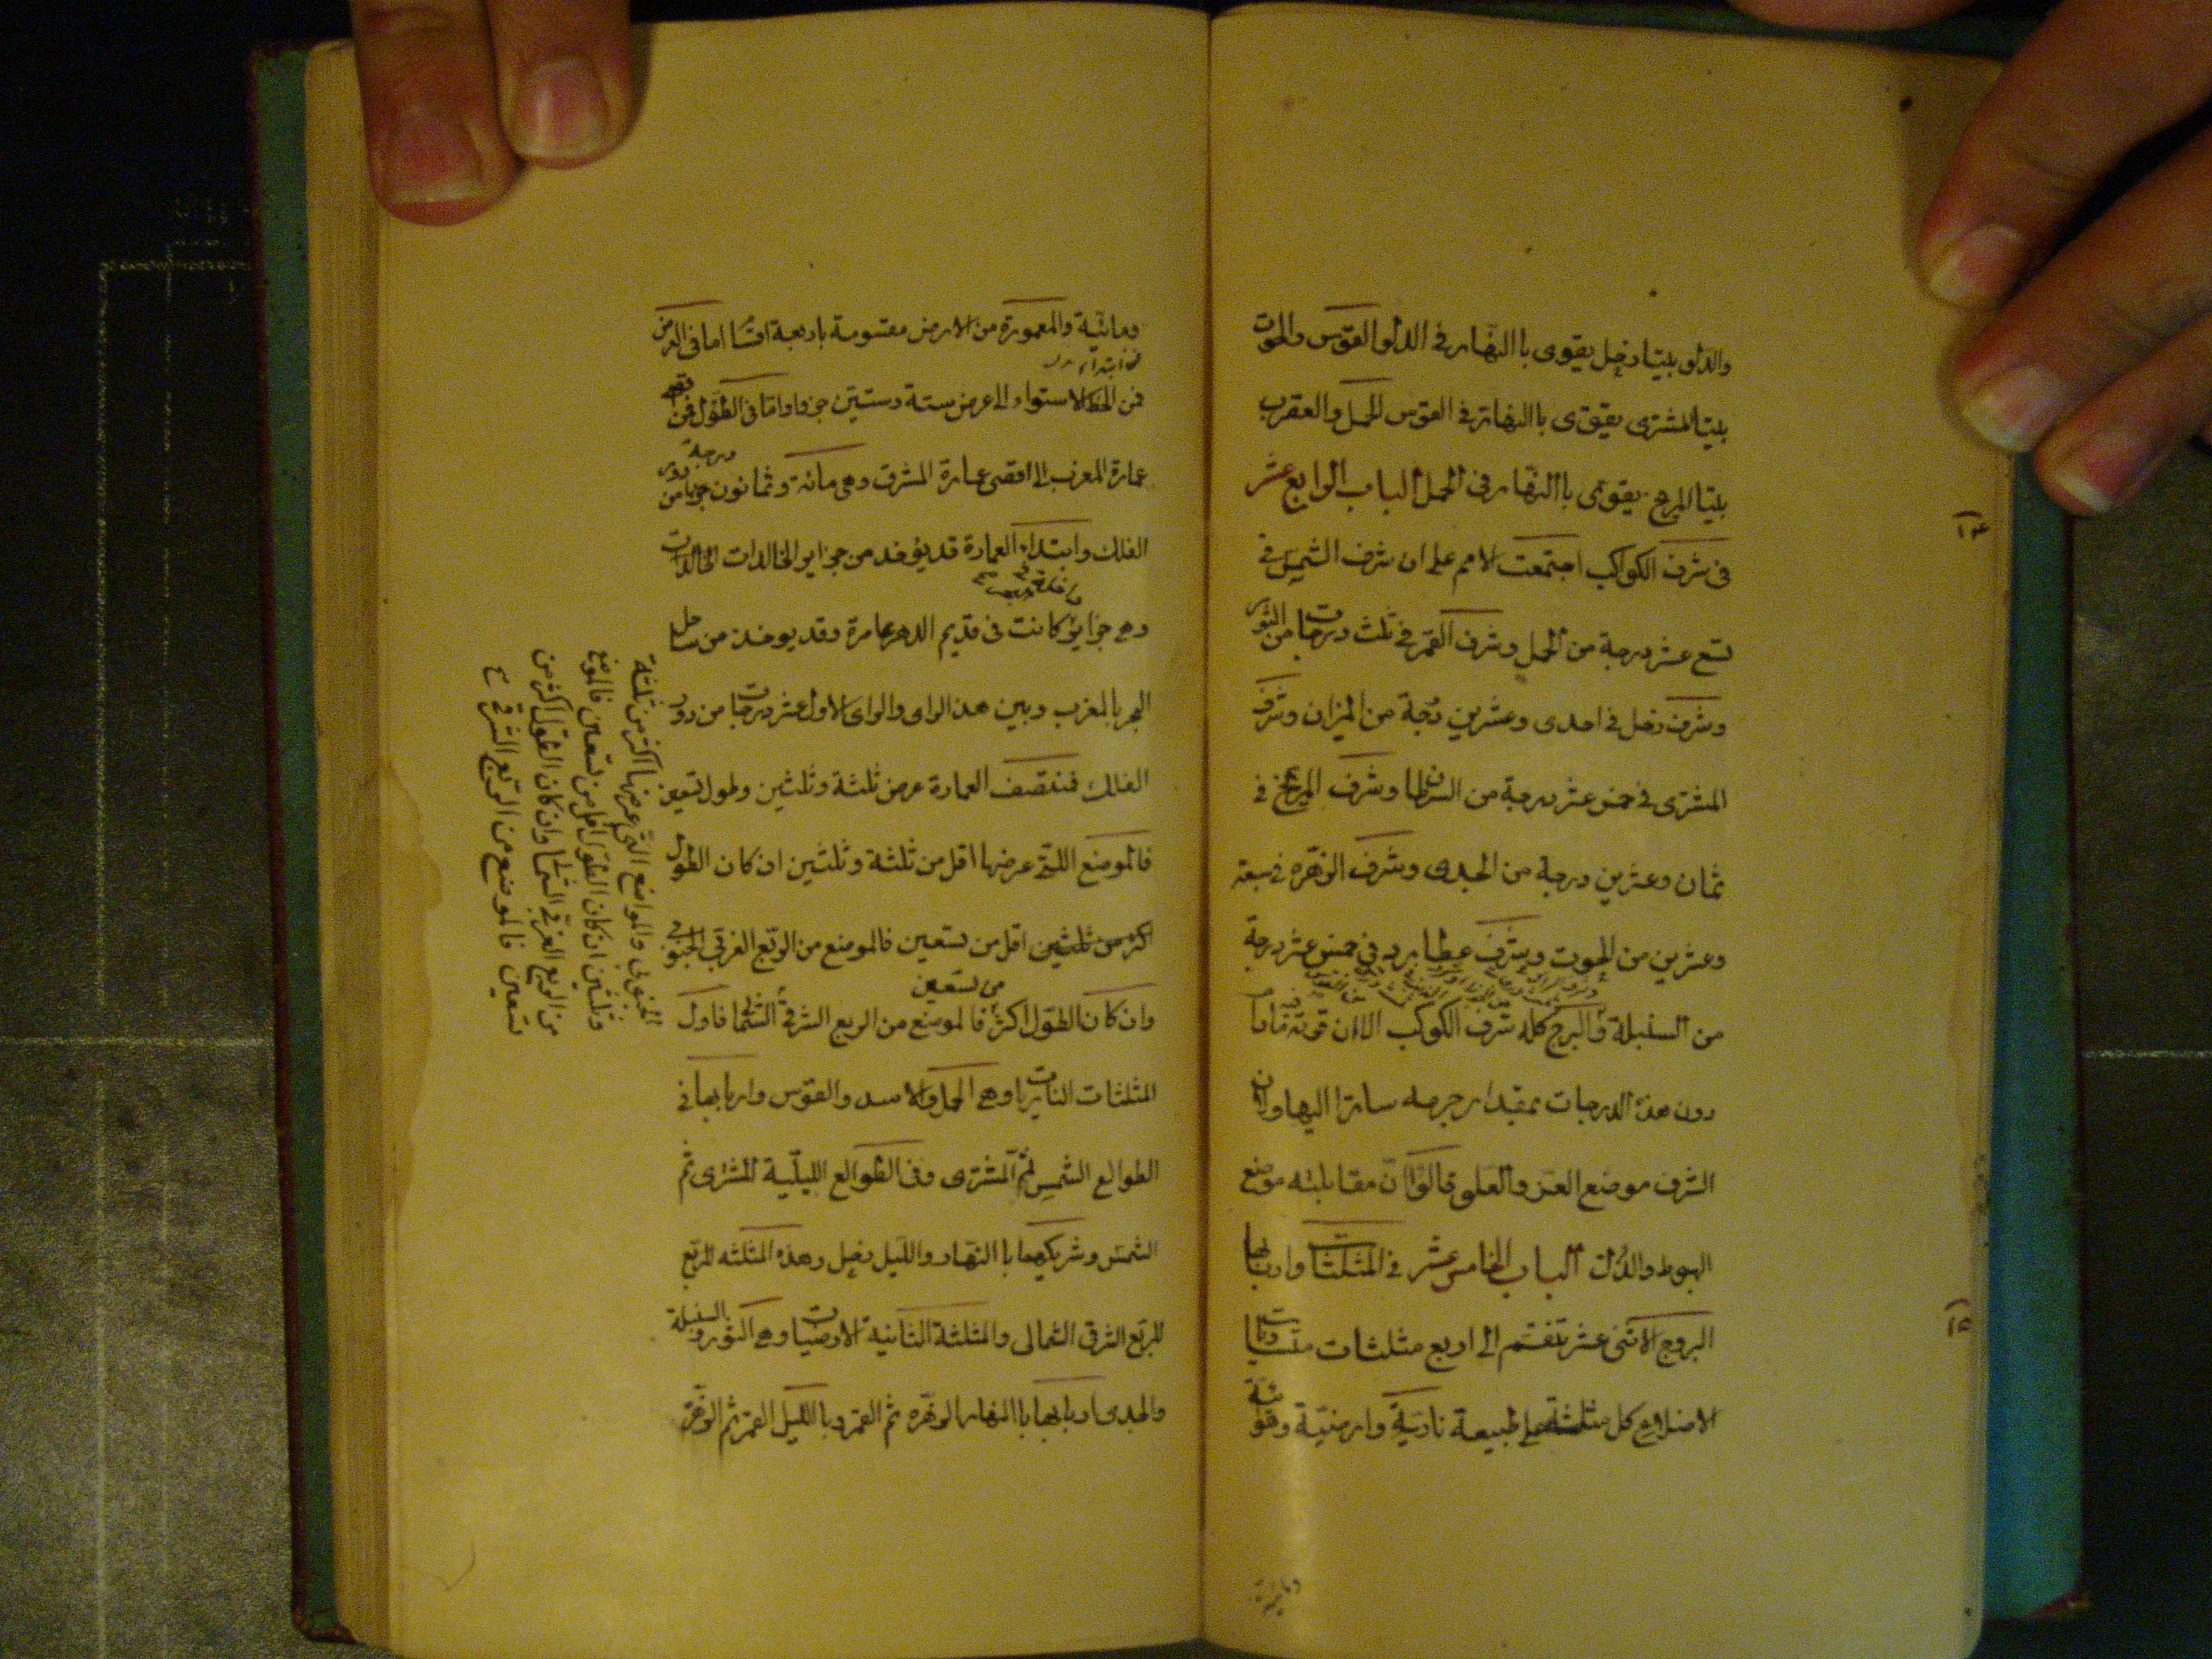 والدلو بيتا زحل يقوى باالنهار فى الدلو القوس والحوت
بيتا المشترى يقوى باالنهار فى القوس الحمل والعقرب
بيتا المريخ يقوى باالنهار فى الحمل الباب الرابع عشر
١٤
فى شرف الكواكب اجتمعت الامم على ان شرف الشمس فى
تسع عشر درجة من الحمل وشرف القمر فى ثلث درجات من الثور
وشرف زحل فى احدى وعشرين درجة من الميزان وشرف
المشترى فى خمس عشر درجة من السرطان وشرف المريخ فى
ثمان وعشرين درجة من الجدى وشرف الزهره فى سبعة
وعشرين من الحوت وشرف عطارد فى خمس عشر درجة
من السنبلة والبرج كله شرف الكوكب الا ان قوته مادام
دون هذه الدرجات بمقدار جرمه سائرا اليها وان
الشرف موضع العز والعلو قالوا ان مقابلته موضع
الهبوط والذل الباب الخامس عشر فى المثلثات واربابها
١٥
البروج الاثنى عشر تنقسم الى اربع مثلثات متساويات
الاضلاع كل مثلثة على طبيعة نارية وارضية وهوئية
ومائية
ومائية والمعمورة من الارض مقسومة باربعة اقسا اما فى العرض
ابتداء
فمن الخط الاستواء الى عرض ستة وستين جزوا واما فى الطول فمن اقصى
عمارة المغرب الى اقصى عمارة المشرق وهى مائة وثمانون جزوا من دور
درجة
الفلك وابتداء العمارة قد يؤخذ من جزاير الخالدات الخالدات
وهى جزاير كانت فى قديم الدهر عامرة وقد يوخذ من ساحل
البحر بالمغرب وبين هذا الراى والراى الاول عشر درجات من دور
الفلك فمنتصف العمارة عرض ثلثة وثلثين وطول تسعين
فالموضع اللتى عرضها اقل من ثلثة وثلثين ان كان الطول
اكثر من ثلثين اقل من تسعين فالموضع من الربع الغربى الجنوبى
من تسعين
وان كان الطول اكثر فالموضع من الربع الشرقى الشمالى فاول
المثلثات الناريات وهى الحمل والاسد والقوس واربابها فى
الطوالع الشمس ثم المشترى وفى الطوالع الليلية المشترى ثم
الشمس وشريكهما باالنهار والليل زحل وهذه المثلثه الربع
للربع الشرقى الشمالى والمثلثة الثانية الارضيات وهى الثور والسنبلة
والجدى اربابها باالنهار الزهره ثم القمر وباالليل القمر ثم الزهره
الجنوبى والمواضع التى عرضها اكثر من ثلثة
وثلثين ان كان الطول اقل من تسعين فالموضع
من الربع الغربى الشمالى وان كان الطول اكثر من
تسعين فالموضع من الربع الشرقى